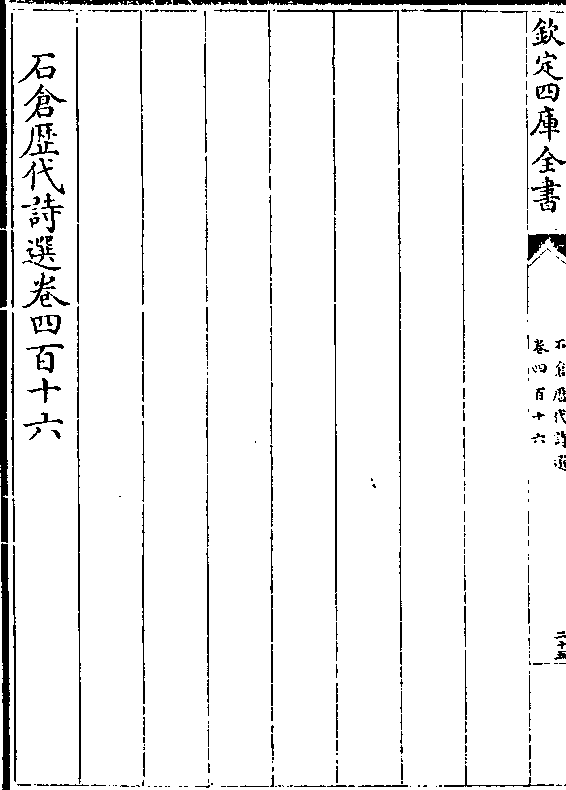 欽定四庫全書
石倉歷代詩選
卷四百十六
二十五
石倉歷代詩選卷四百十六